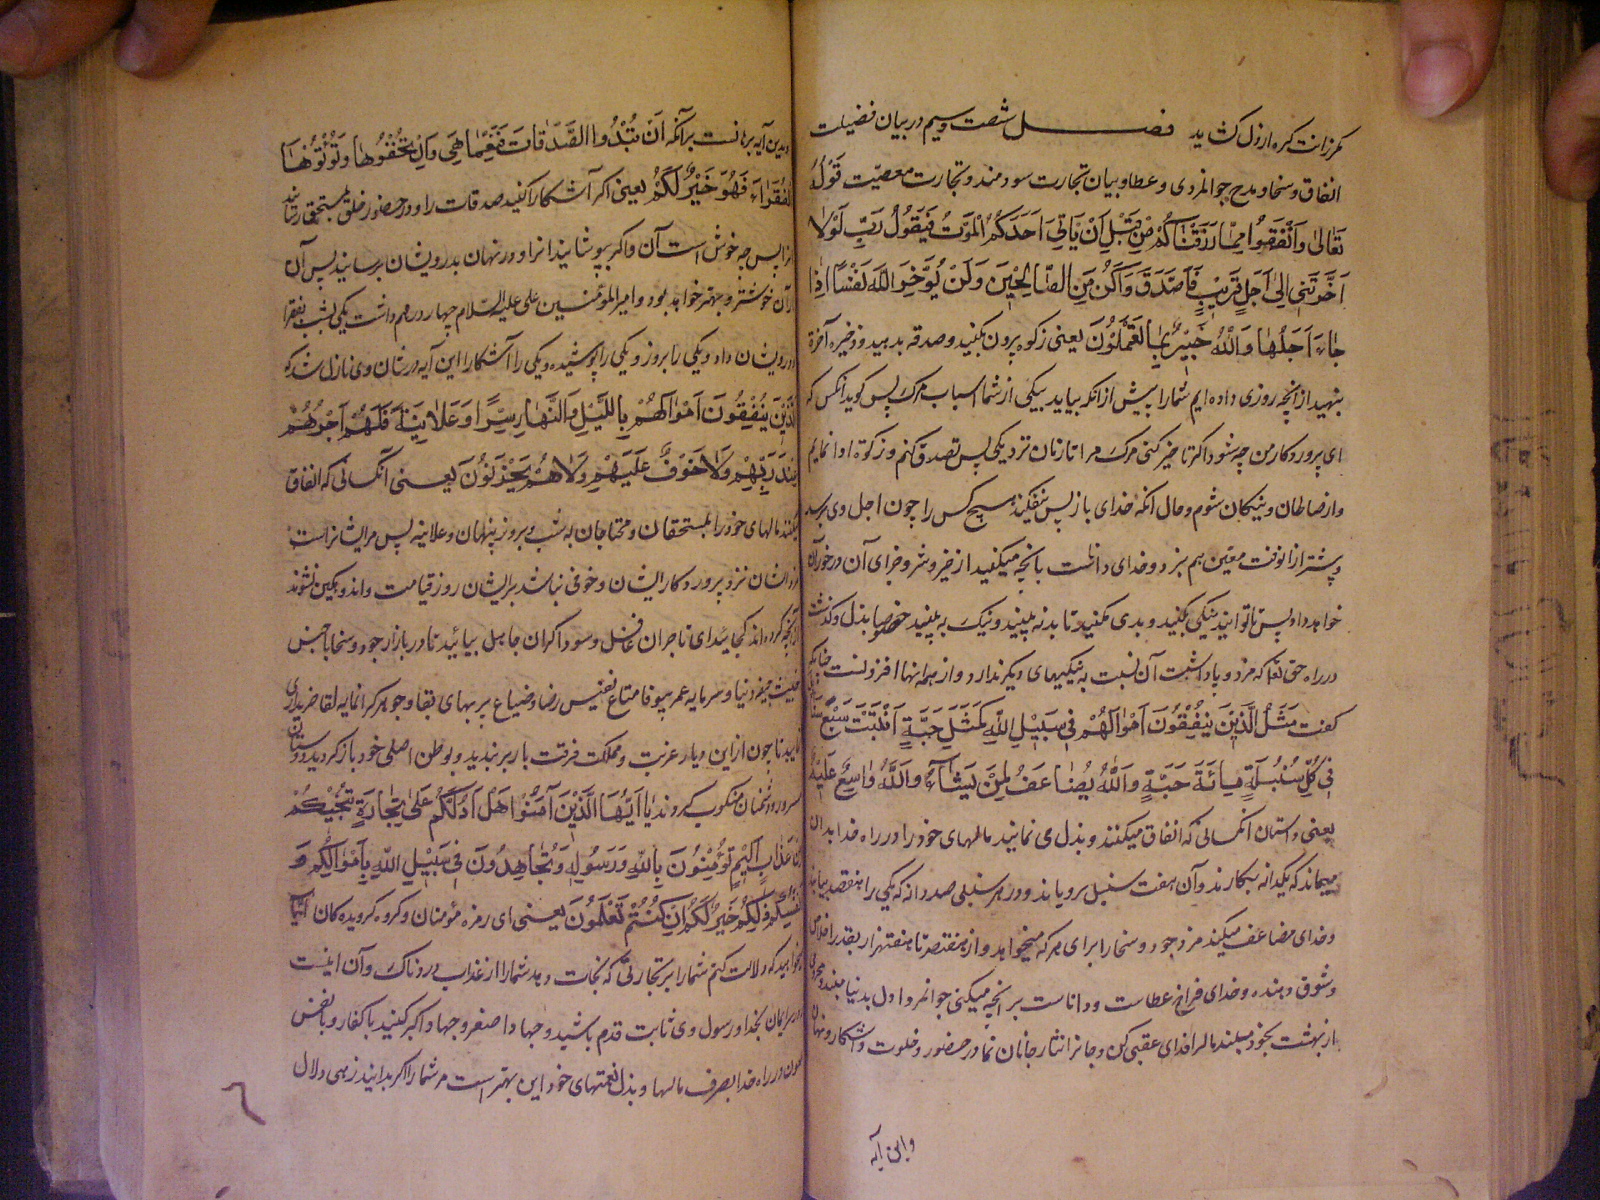 فصل شصت و سیم در بیان فضیلت
انفاق و سخا و مدح جوانمردی و عطا و بیان تجارت سودمند و تجارت معصیت قَوْلُهُ
تَعَالیٰ وَاَنْفِقُوا مِمَّا رَزَقْنَاکُمْ مِنْ قَبْلِ اَنْ یَأْتِیَ اَحَدَکُمُ الْمَوْتُ فَیَقُولَ رَبِّ لَوْلَا
اَخَّرْتَنِی اِلیٰ اَجَلٍ قَرِیبٍ فَاَصَّدَّقَ وَاَکُنْ مِنَ الصَّالِحِینَ وَلَنْ یُؤَخِّرَ اللَّهُ نَفْسًا اِذَا
جَاءَ اَجَلُهَا وَاللَّهُ خَبِیرٌ بِمَا تَعْمَلُونَ یعنی زکوة برون بکنید و صدقه بدهید و ذخیره آخرة
بنهید از آنچه روزی داده ایم شما را پیش از انکه بیاید بیکی از شما اسباب مرک پس کوید انکس که
ای پروردکار من چه شود اکر تاخیر کنی مرک مرا تا زمان نزدیکی پس تصدق کنم و زکوة ادا نمایم
و از صالحان و نیکان شوم و حال انکه خدای باز پس نیفکند هیچ کس را چون اجل وی برسد
و پیشتر از انوقت معین هم نبرد و خدای داناست بانچه میکنید از خیر و شر و جزای آن در خور آن
خواهد داد پس تا توانید نیکی بکنید و بدی مکنید تا بد نه بینید و نیک به بینید خصوصا بذل و کذشت
در راه حق تعا که مزد و پاداشت آن نسبت به نیکیهای دیکر ندارد و از همه انها افزونست چنانکه
کفت مَثَلُ الَّذِینَ یُنْفِقُونَ اَمْوَالَهُمْ فِی سَبِیلِ اللَّهِ کَمَثَلِ حَبَّةٍ اَنْبَتَتْ سَبْعَ سَنَابِلَ
فِی کُلِّ سُنْبُلَةٍ مِائَةُ حَبَّةٍ وَاللَّهُ یُضَاعِفُ لِمَنْ یَشَاءُ وَاللَّهُ وَاسِعٌ عَلِیمٌ
یعنی داستان انکسانی که انفاق میکنند و بذل می نمایند مالهای خود را در راه خدا بدان
میماند که یکدانه بکارند و آن هفت سنبل برویاند و در هر سنبلی صد دانه که یکی را هفتصد بیابند
و خدای مضاعف میکند مزد جود و سخا را برای هر که میخواهد و از هفتصد تا هفتهزار بقدر اخلاص
و شوق دهنده و خدای فراخ عطاست و داناست بر انچه میکنی جوانمردا دل بدنیا مبند و محروم
از بهشت بخود مپسند مال را فدای عقبی کن و جانرا نثار جانان نما و در حضور و خلوت و اشکار و نهان
و این آیه
بدین آیه برهانست بر آنکه اَنْ تُبْدُوا الصَّدَقَاتِ فَنِعِمَّا هِیَ وَاِنْ تُخْفُوهَا وَتُؤْتُوهَا
الْفُقَرَاءَ فَهُوَ خَیْرٌ لَکُمْ یعنی اکر آشکارا کنید صدقات را و در حضور خلق بمستحق رسانید
انرا پس چه خوش است آن و اکر بپوشانید انرا و در نهان بدرویشان برسانید پس آن
از آن خوشتر و بهتر خواهد بود و امیر المؤمنین علی علیه السلام چهار درهم داشت یکی بشب بفقرا
و درویشان داد و یکی را بروز و یکی را پوشیده و یکی را آشکارا این آیه در شان وی نازل شد که
الَّذِینَ یُنْفِقُونَ اَمْوَالَهُمْ بِاللَّیْلِ وَالنَّهَارِ سِرًّا وَعَلَانِیَةً فَلَهُمْ اَجْرُهُمْ
عِنْدَ رَبِّهِمْ وَلَا خَوْفٌ عَلَیْهِمْ وَلَا هُمْ یَحْزَنُونَ یعنی آنکسانی که انفاق
میکنند مالهای خود را بمستحقان و محتاجان به شب و بروز پنهان و علانیه پس مر ایشانراست
مزد ایشان نزد پروردکار ایشان و خوفی نباشد بر ایشان روز قیامت و اندوهکین نشوند
از آنچه کرده اند کجائید ای تاجران غافل و سوداکران جاهل بیائید تا در بازار جود و سخا با جنس
خبیث جیفه دنیا و سرمایه عمر بیوفا متاع نفیس رضا و ضیاع پر بهای بقا و جوهر کرانمایه لقا خریداری
نمایید تا چون از این دیار غربت و مملکت فرقت بار بربندید و بوطن اصلی خود باز کردید دوستان
مسرور و دشمنان منکوب کردند یَا اَیُّهَا الَّذِینَ آمَنُوا هَلْ اَدُلُّکُمْ عَلیٰ تِجَارَةٍ تُنْجِیکُمْ
مِنْ عَذَابٍ اَلِیمٍ تُؤْمِنُونَ بِاللَّهِ وَرَسُولِهِ وَتُجَاهِدُونَ فِی سَبِیلِ اللَّهِ بِاَمْوَالِکُمْ وَ
اَنْفُسِکُمْ ذَلِکُمْ خَیْرٌ لَکُمْ اِنْ کُنْتُمْ تَعْلَمُونَ یعنی ای زمره مؤمنان و کروه کرویده کان آیا
میخواهید که دلالت کنم شما را بر تجارتی که نجات دهد شما را از عذاب دردناک و آن اینست
که در ایمان بخدا و رسول وی ثابت قدم باشید و جهاد اصغر و جهاد اکبر کنید با کفار و با نفس
در راه خدا بصرف مالها و بذل نعمتهای خود این بهتر است مر شما را اکر بدانید زهی دلال